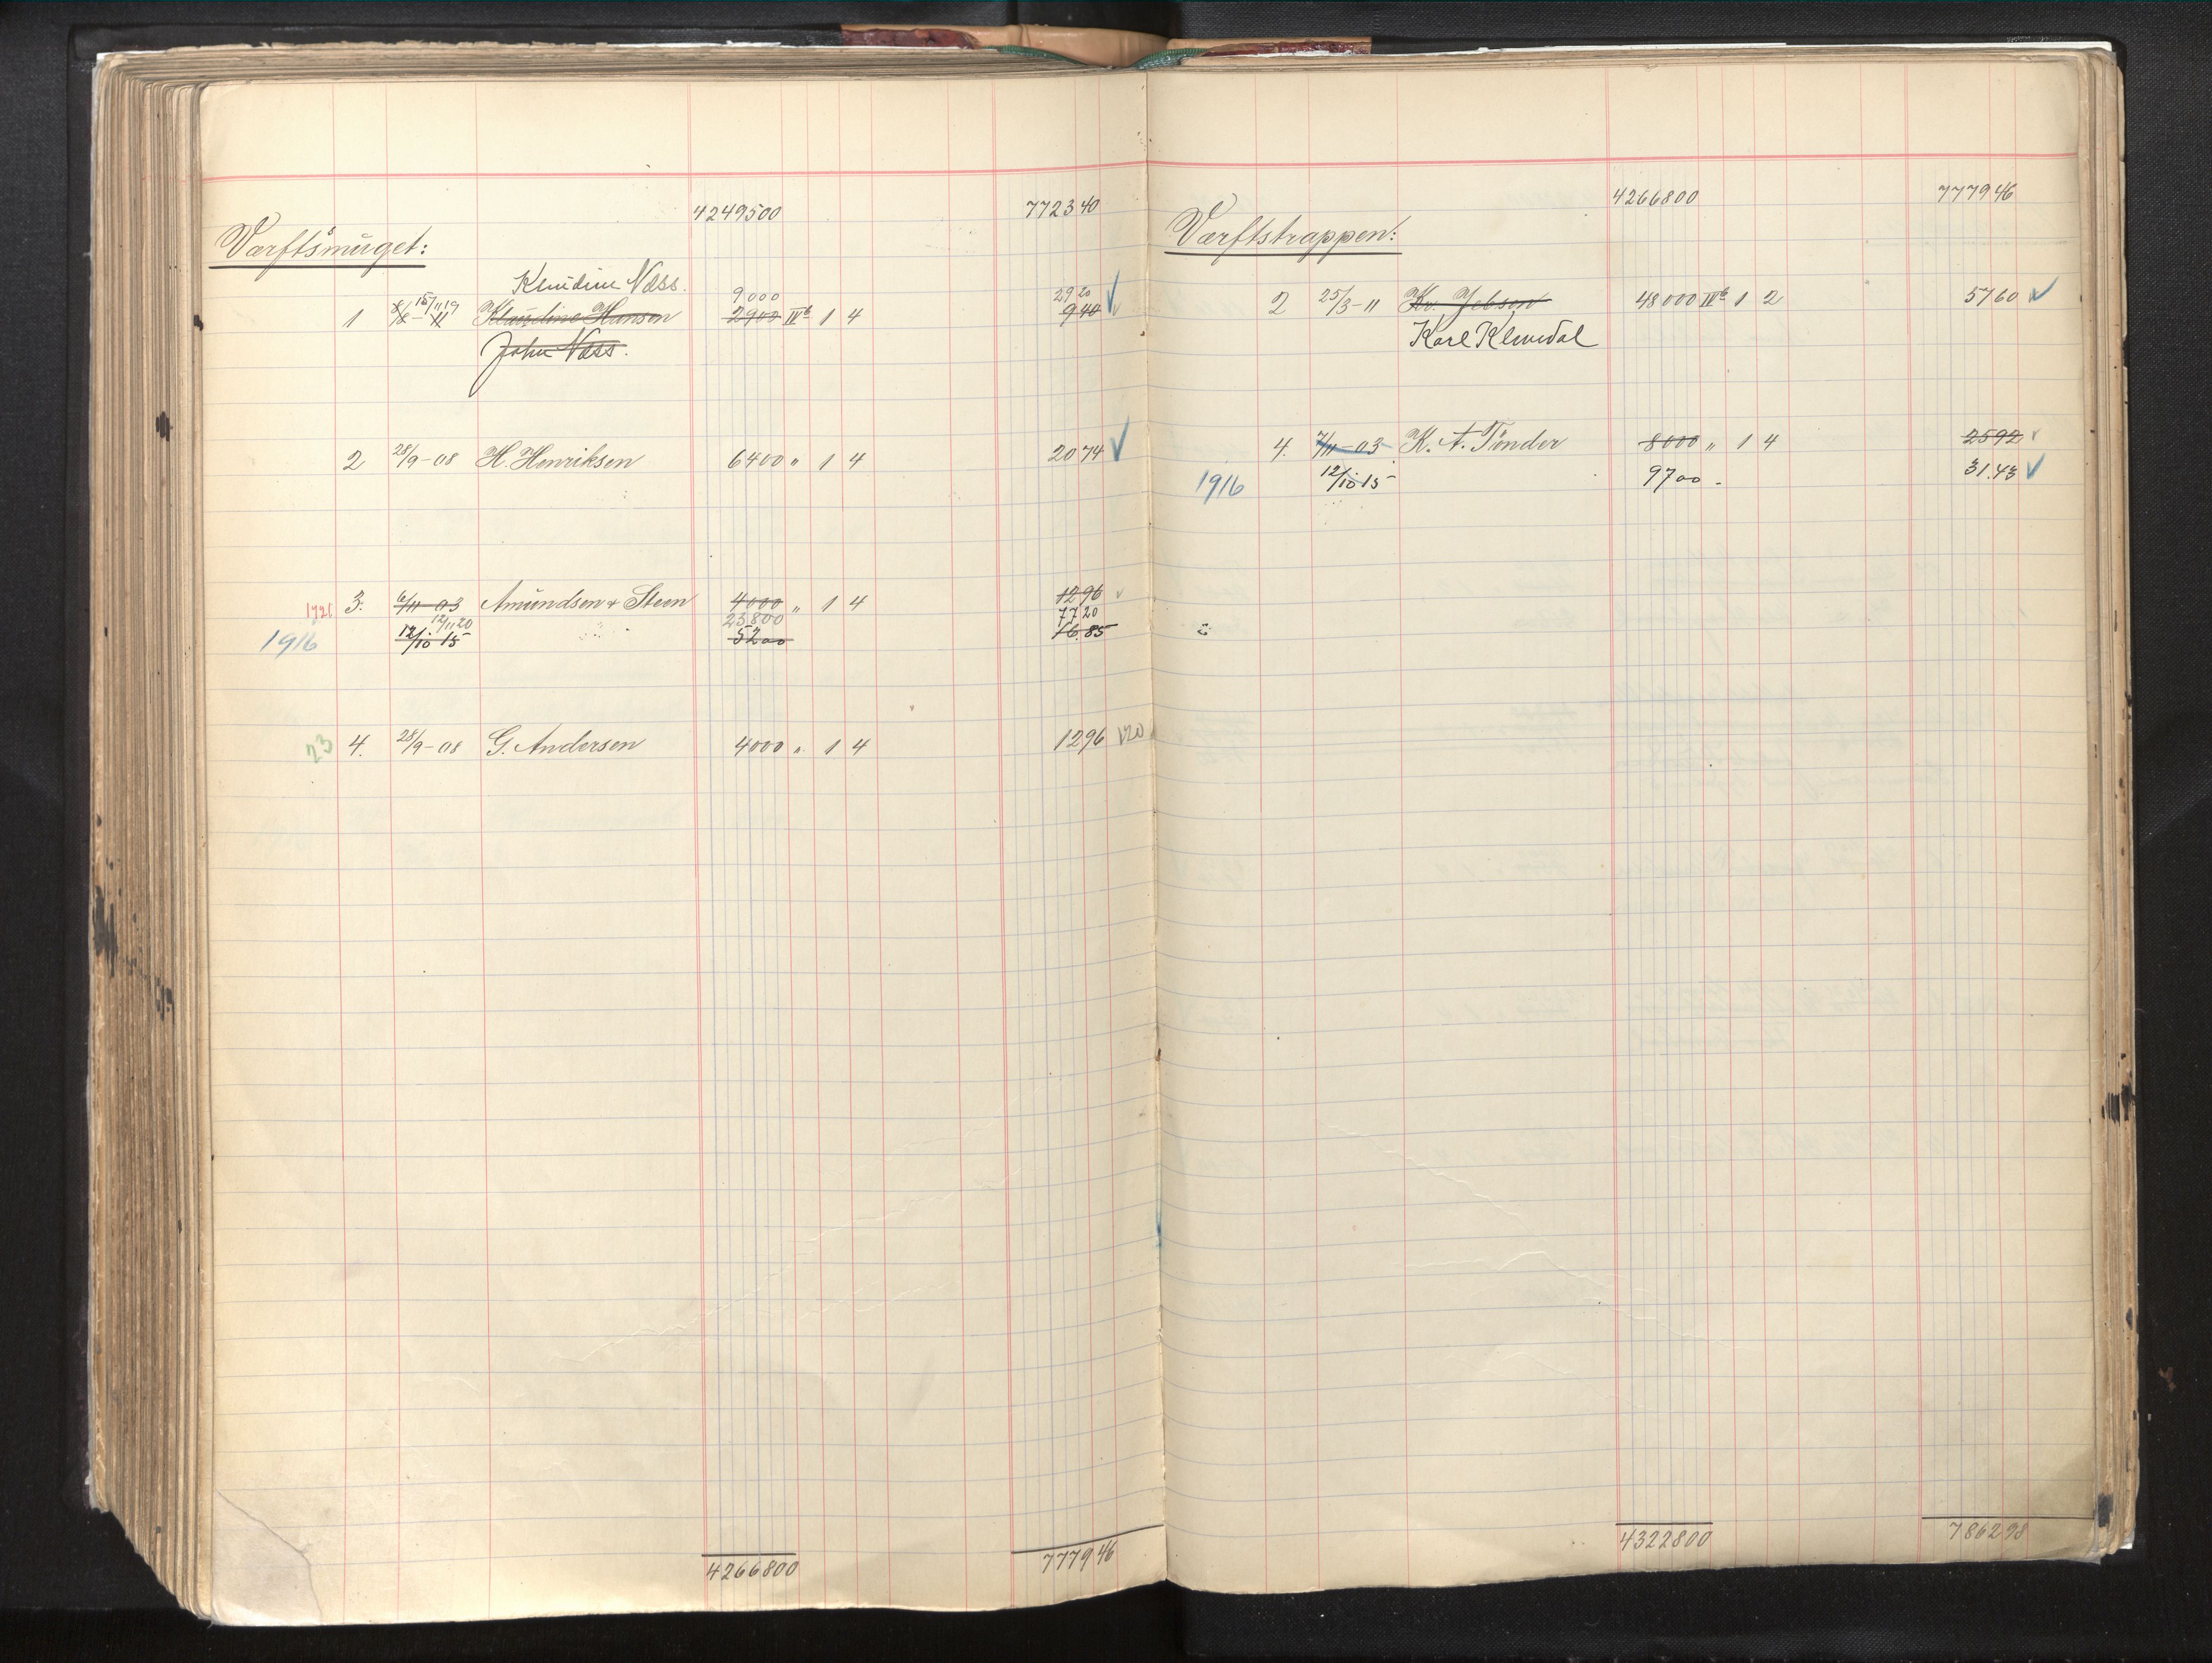 4249500 772340
Værftsmuget:
Klaudine Næss.
9000 2920
1 8/8- 15/11 19 Klaudine Hansen 2900 IVb 1 4 940
John Næss.
2 28/9-08 H. Henriksen 6400 " 1 4 2074
1921 3. 6/11-03 Amundsen & Steen 4000 " 1 4 1296
12/11 20 23800 7720
1916 12/10 15 5200 16.85
23 4. 28/9-08 G. Andersen 4000 " 1 4 1296 V20
4266800 777946
4266800 777946
Værftstrappen:
2 25/3-11 Kr. Jebsen 48000 IVb 1 2 5760
Karl
4. 7/11-03 K. A. Tönder 8000 " 1 4 2592
1916 12/10 15 9700 - 31.43
4322800 786298